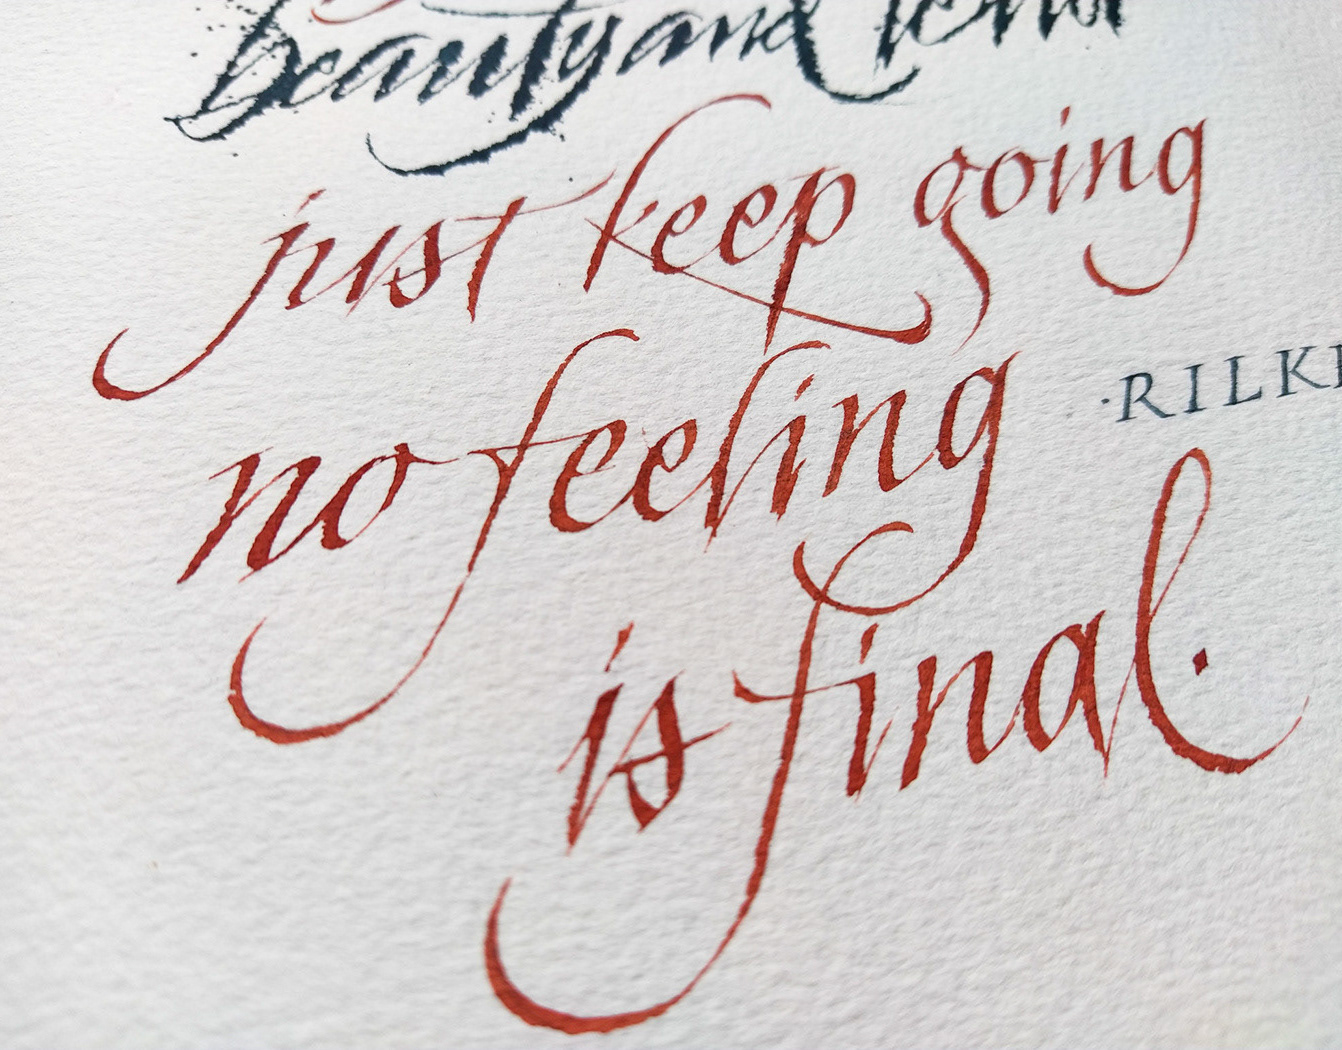 beauty and terror
just keep going
no feeling
·RILKE
is final.